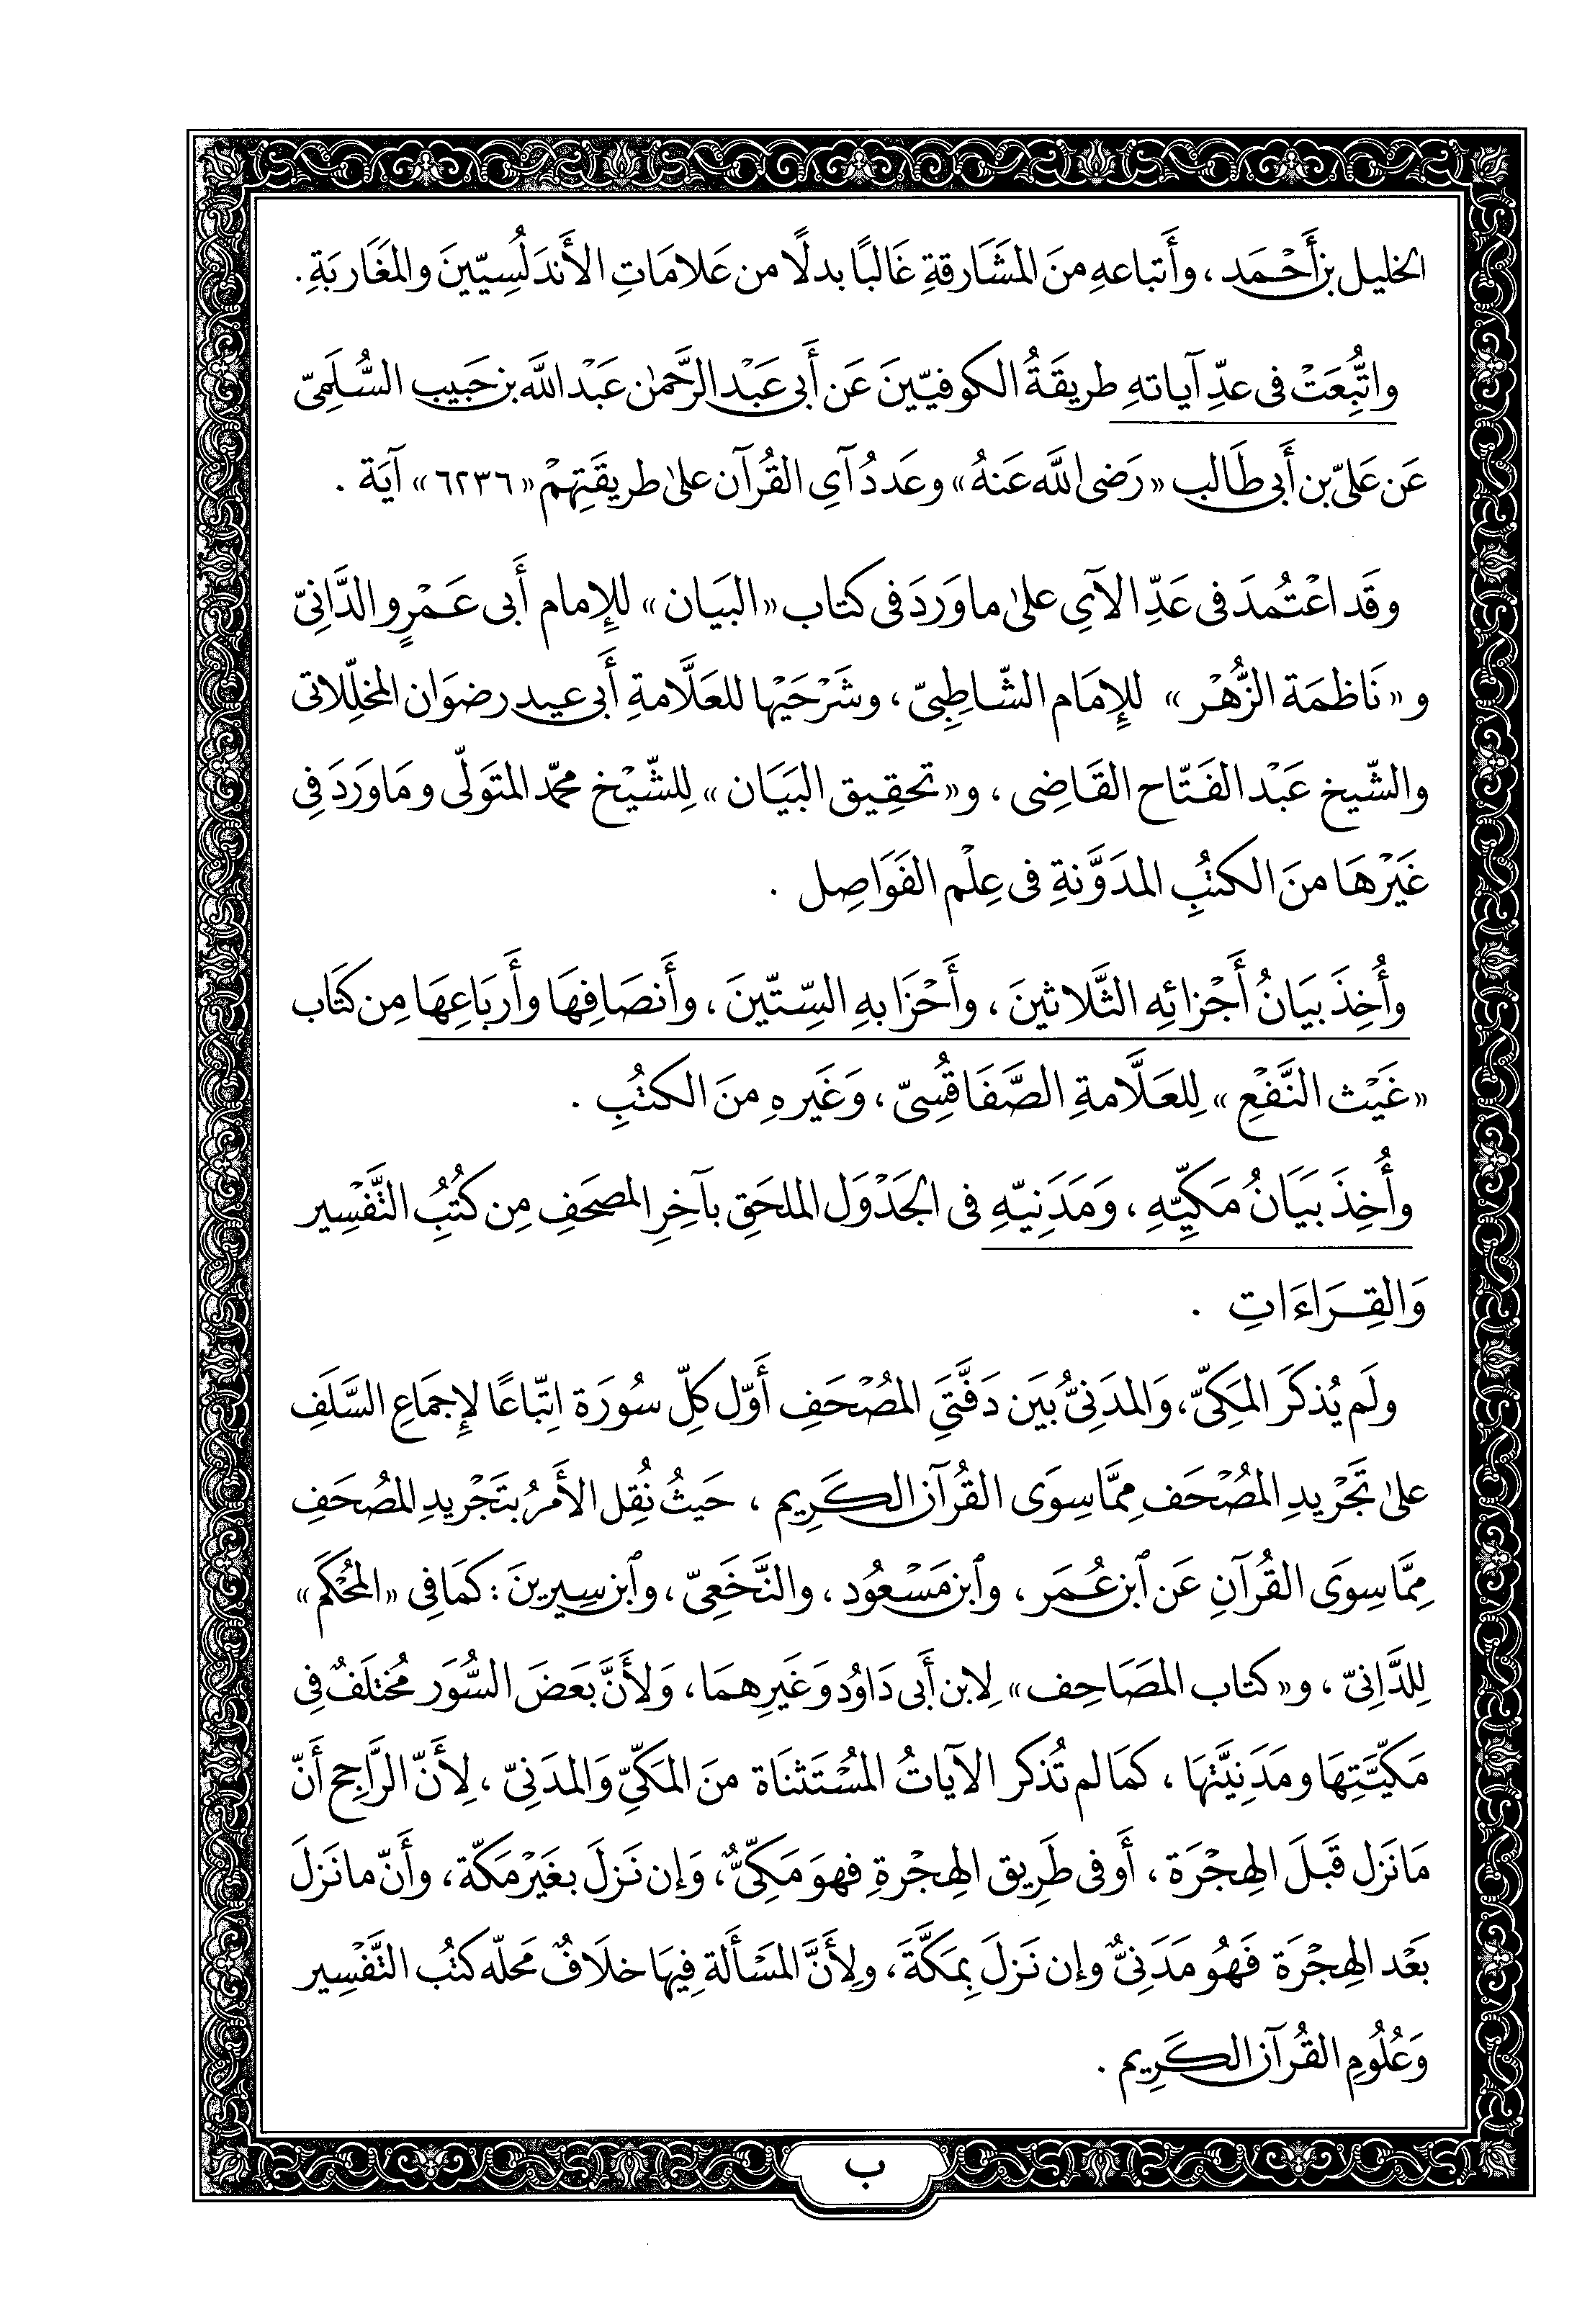 الخليل بن أَحْمَد ، وأَتباعهِ منَ المشَارقةِ غَالبًا بدلًا من عَلامَاتِ الأَندَلُسِيّينَ والمغَاربَةِ .
واتُّبِعَتْ فى عدِّ آياتهِ طريقَةُ الكوفيّينَ عَن أَبى عَبْد الرَّحمٰن عَبْد اللَّه بن حَبِيب السُّلَمِىّ
عَن عَلىّ بن أَبى طَالب «رَضى اللَّه عَنهُ» وعَددُ آىِ القُرآن علىٰ طريقَتِهمْ «٦٢٣٦» آيَة .
وقَد اعْتُمدَ فى عَدِّ الآىِ علىٰ ماوَردَ فى كتاب «البيَان» للإِمام أَبى عَمْرٍو الدَّانِىّ
و «نَاظمَة الزُّهْر» للإِمَام الشّاطِبِىّ ، وشَرْحَيْها للعَلَّامةِ أَبى عيد رضوَان المخلِّلاتى
والشّيخ عَبْد الفَتّاح القَاضِى ، و«تحقِيق البيَان» لِلشّيْخ محمّد المتَولّى ومَاوَردَ فِى
غَيْرْهَا منَ الكتُبِ المدَوَّنةِ فى عِلْم الفَوَاصِل .
وأُخِذَ بيَانُ أَجْزائهِ الثَّلاثينَ ، وأَحْزَابهِ السِّتّينَ ، وأَنصَافِهَا وأَربَاعِهَا مِن كتَاب
«غَيْث النَّفْعِ» لِلعَلَّامةِ الصَّفَاقُسِىّ ، وَغَيرهِ منَ الكتُبِ .
وأُخِذَ بيَانُ مَكِيِّهِ ، وَمَدَنِيّهِ فى الجَدْوَل الملحَقِ بآخِرِ المصحَفِ مِن كتُبِ التَّفْسِير
وَالقِرَاءَاتِ .
ولَم يُذكَرَ المَكِىّ، وَالمدَنىُّ بَيَن دَفَّتَىِ المُصْحَفِ أَوّل كلِّ سُورَة اتِّباعًا لإِجمَاعِ السَّلَفِ
علىٰ تَجْريدِ المُصْحَف مِمَّا سِوَى القُرآن الكَرِيم ، حَيثُ نُقِل الأَمرُ بتَجْريدِ المُصحَفِ
مِمَّا سِوَى القُرآنِ عَن ٱبن عُمَر ، وٱبن مَسْعُود ، والنَّخَعِىّ ، وٱبن سِيرينَ : كمَا فِى «المُحْكَم»
لِلدَّانِىّ ، و«كتاب المصَاحِف» لِابن أَبى دَاوُد وَغَيرِهمَا ، وَلأَنَّ بَعَضَ السُّوَر مُختلَفٌ فِى
مَكيّتِهَا ومَدَنِيَّتهَا ، كمَا لم تُذكر الآياتُ المُسْتَثنَاة منَ المَكىِّ وَالمدَنىّ ، لِأَنّ الرَّاجِح أَنّ
مَا نَزل قَبلَ الهِجْرَة ، أَو فى طَرِيق الهِجْرةِ فهوَ مَكىٌّ ، وَإن نَزلَ بغَيْر مَكّة ، وأَنّ ما نَزلَ
بعَْد الهِجْرَة فَهُو مَدَنىٌّ وإن نَزلَ بِمَكَّةَ ، ولِأَنَّ المَسْأَلة فِيهَا خلَافٌ مَحلّه كتُب التَّفْسِير
وَعُلُومِ القُرآن الكَرِيم .
ب